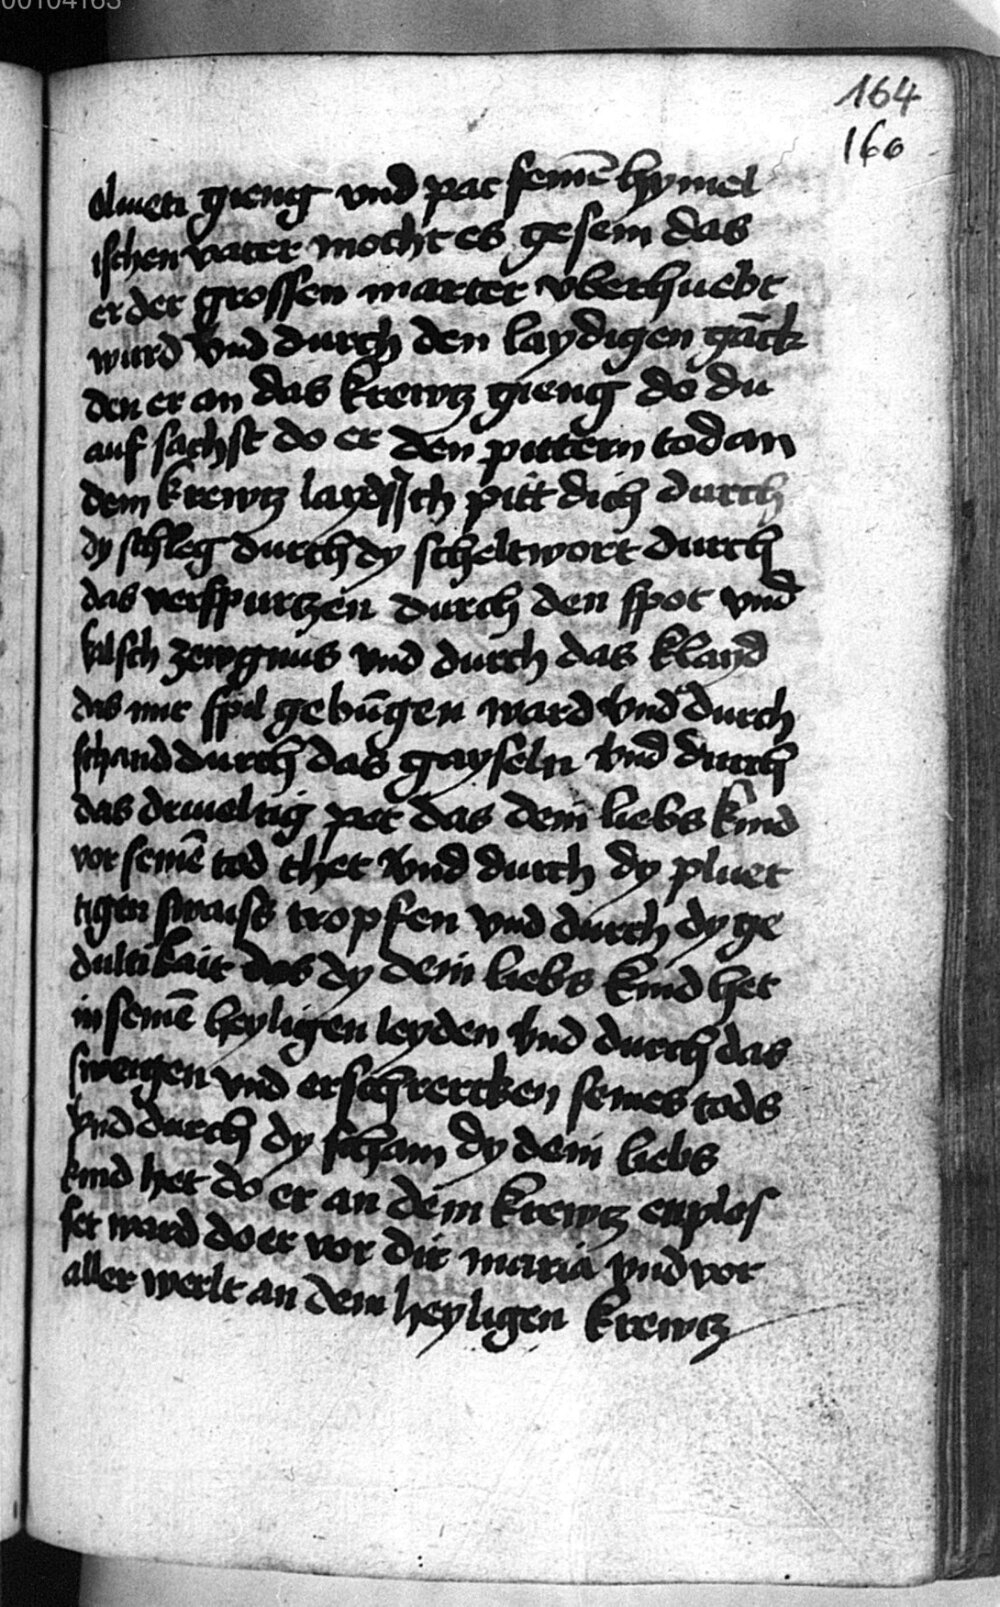 00104163
164
160
oliueti gieng vnd pat seinē hymel
ischen vater mocht es gesein das
er der grossen marter vberhuebt
wurd Vnd durch den laydigen gāck
den er an das krewtz gieng do du
auf sachst do er den pittern tod an
dem krewtz layd Ich pitt dich durch
dy schleg durch dy scheltwort durch
das verspurtzen durch den spot vnd
valsch zewgnus vnd durch das klayd
das mit spil gebūgen ward Vnd durch
schand durch das gayseln Vnd durch
das pet das dein liebs kind
vor seinē tod thet Vnd durch dy pluet
tigen swaiss tropfen vnd durch dy ge
dultikait das dy dein liebs kind het
in seinē heyligen leyden Vnd durch das
sweygen vnd erschrecken seines tods
Vnd durch dy scham dy dein liebs
kind het do er an dem krewtz enplos
set ward do er vor dir maria vnd vor
aller werlt an dem heyligen krewtz